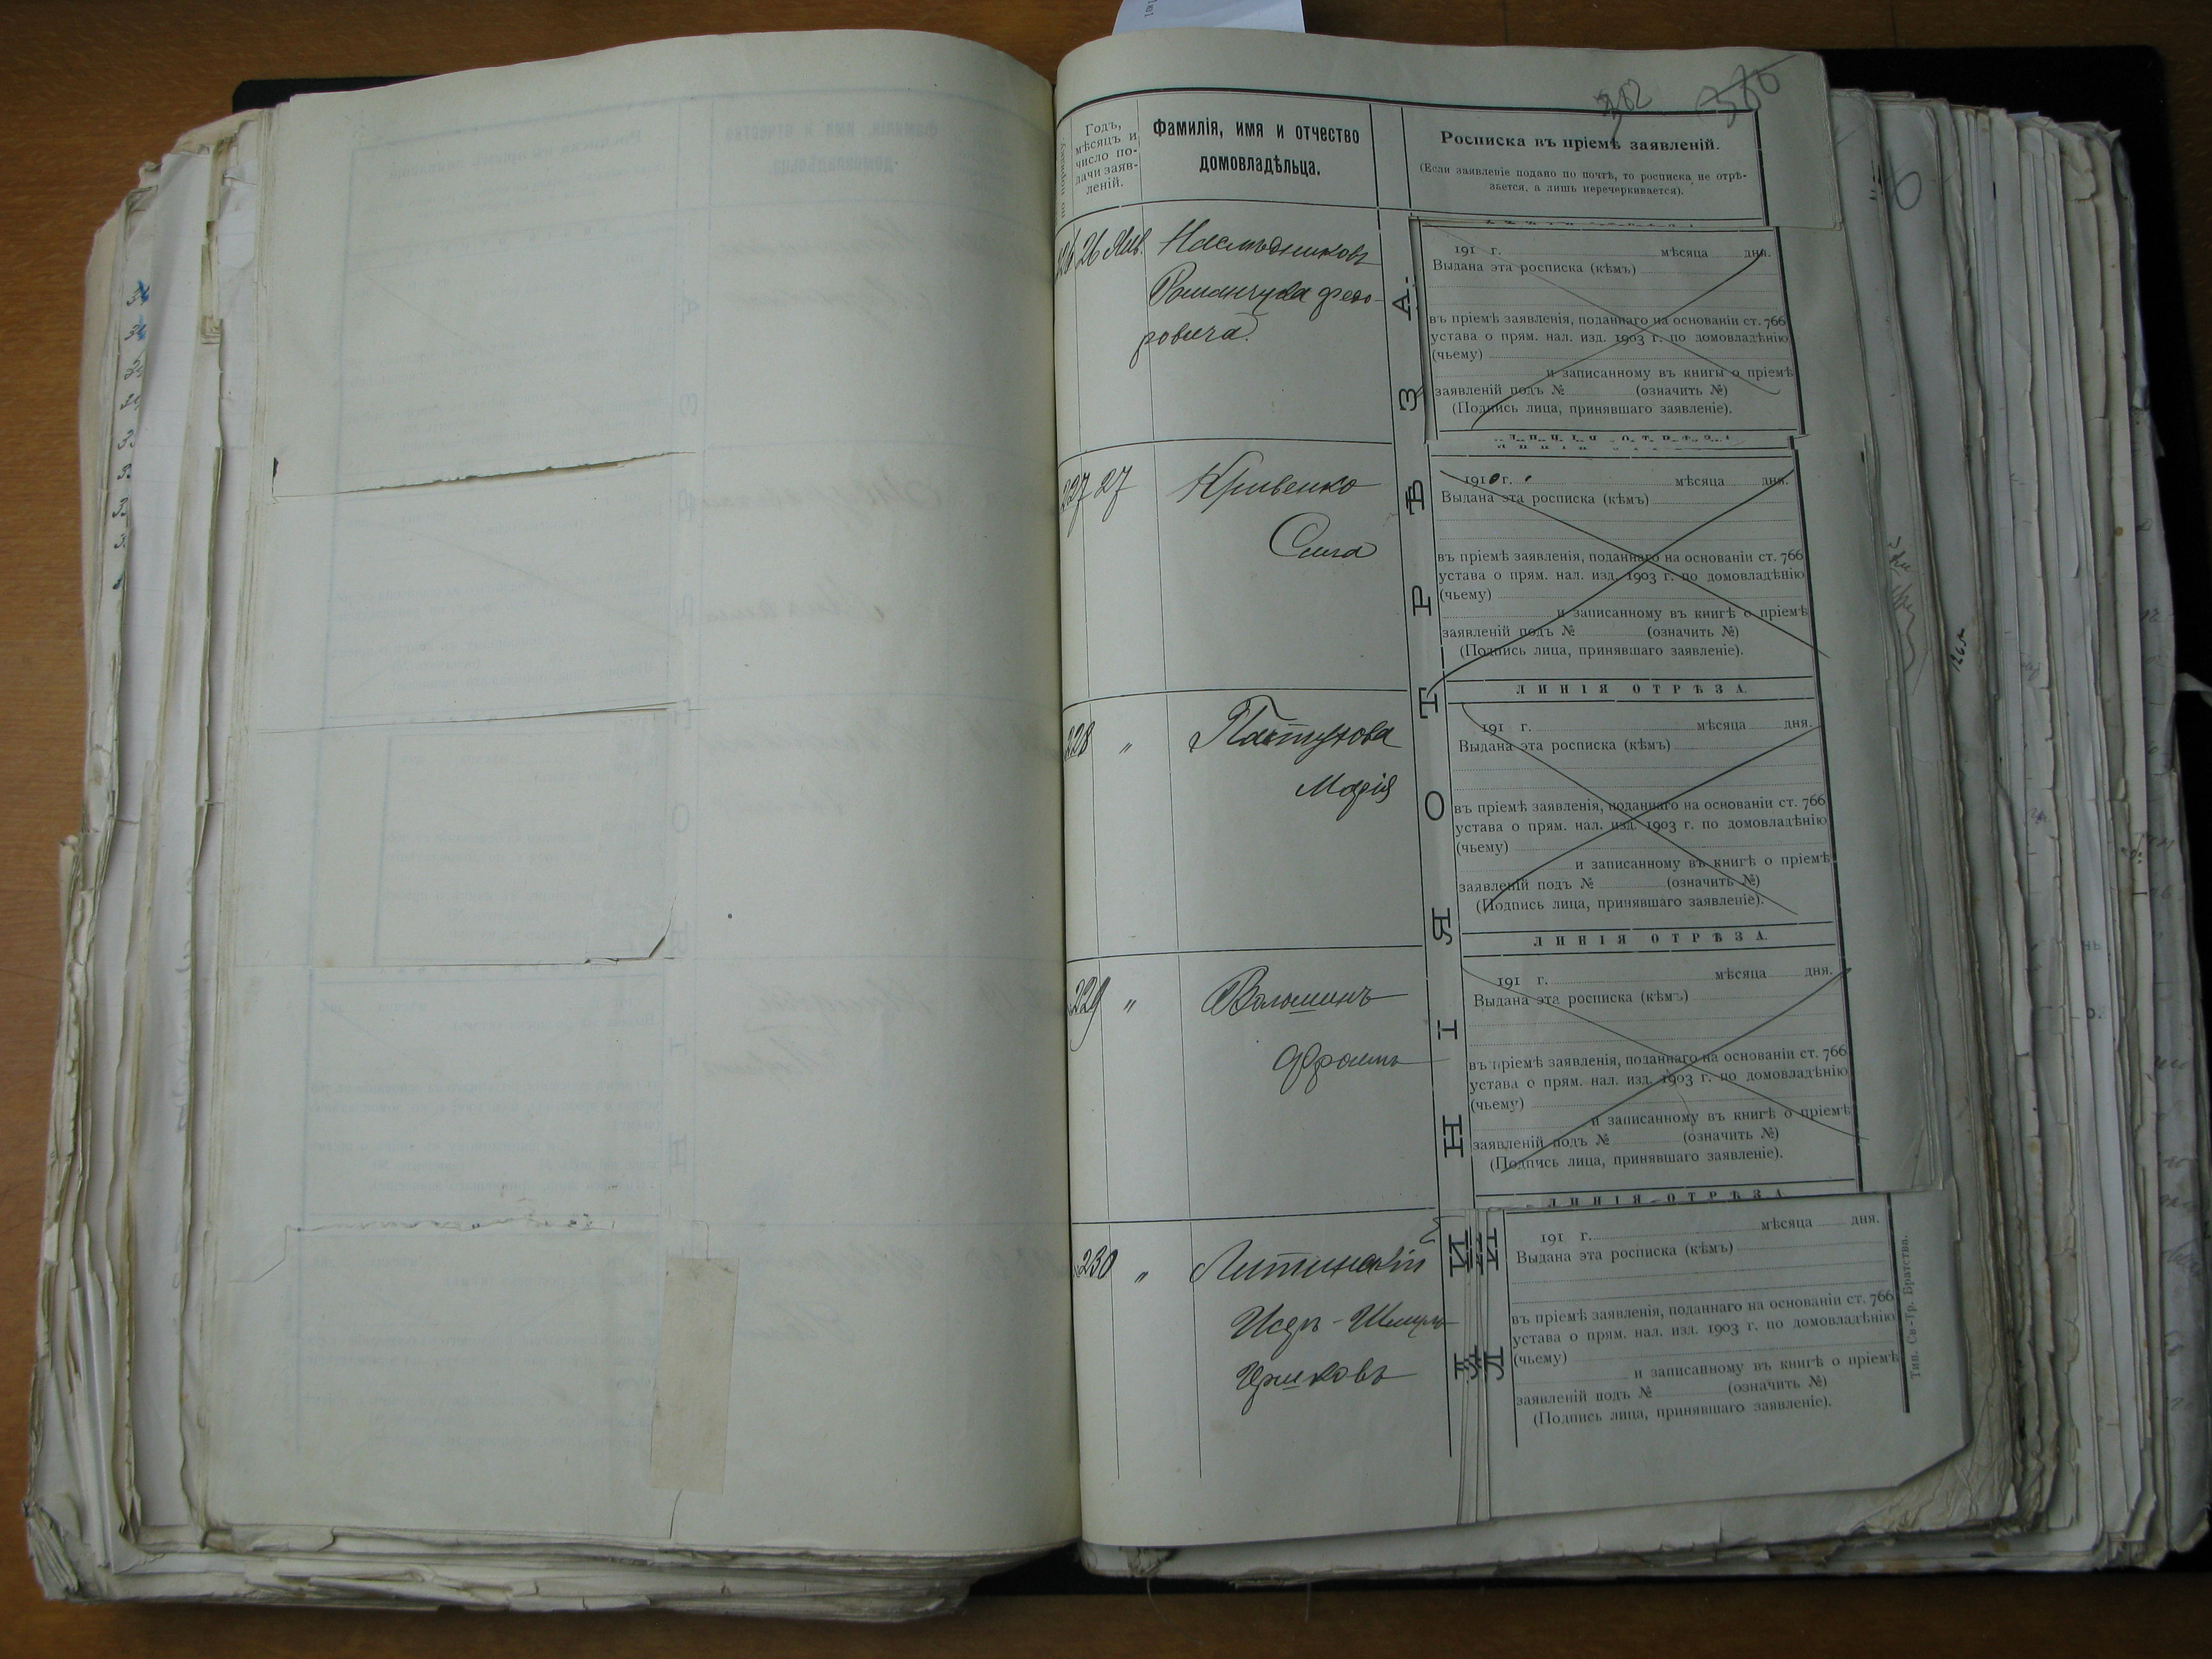 382
Годъ,
мѣсяцъ и
число по-
дачи заяв-
леній.
Фамилія, имя и отчество
домовладѣльца.
Росписка въ пріемѣ заявленій.
(Если заявленіе подано по почтѣ, то росписка не отрѣ-
зается, а лишь перечеркивается).
226 26 Янв. Наслѣдниковъ
Романчука Федо-
ровича
191 г. мѣсяца дня.
Выдана эта росписка (кѣмъ)
въ пріемѣ заявленія, поданнаго на основаніи ст. 766
устава о прям. нал. изд. 1903 г. по домовладѣнію
(чьему)
и записанному въ книгы о пріемѣ
заявленій подъ № (означить №)
(Подпись лица, принявшаго заявленіе).
227 27 Кривенко
Сима
1910 г. мѣсяца дня.
Выдана эта росписка (кѣмъ)
въ пріемѣ заявленія, поданнаго на основаніи ст. 766
устава о прям. нал. изд. 1903 г. по домовладѣнію
(чьему)
и записанному въ книгѣ о пріемѣ
заявленій подъ № (означить №)
(Подпись лица, принявшаго заявленіе).
ЛИНІЯ ОТРѢЗА.
228 " Пастухова
Марія
191 г. мѣсяца дня.
Выдана эта росписка (кѣмъ)
въ пріемѣ заявленія, поданнаго на основаніи ст. 766
устава о прям. нал. изд. 1903 г. по домовладѣнію
(чьему)
и записанному въ книгѣ о пріемѣ
заявленій подъ № (означить №)
(Подпись лица, принявшаго заявленіе).
ЛИНІЯ ОТРѢЗА.
229 " Волошинъ
Фроимъ
191 г. мѣсяца дня.
Выдана эта росписка (кѣмъ)
въ пріемѣ заявленія, поданнаго на основаніи ст. 766
устава о прям. нал. изд. 1903 г. по домовладѣнію
(чьему)
и записанному въ книгѣ о пріемѣ
заявленій подъ № (означить №)
(Подпись лица, принявшаго заявленіе).
ЛИНІЯ ОТРѢЗА
230 " Литинскій
Шмуль
Гершковъ
191 г. мѣсяца дня.
Выдана эта росписка (кѣмъ)
въ пріемѣ заявленія, поданнаго на основаніи ст. 766
устава о прям. нал. изд. 1903 г. по домовладѣнію
(чьему)
и записанному въ книгѣ о пріемѣ
заявленій подъ № (означить №)
(Подпись лица, принявшаго заявленіе).
ЛИНІЯ ОТРѢЗА.
Тип. Св-Тр. Братства.